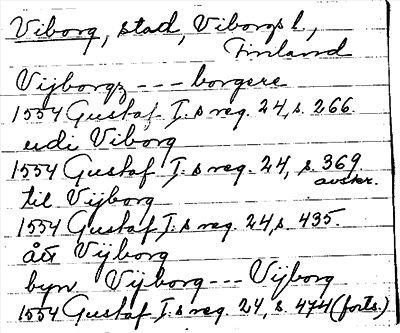 Viborg, stad, Viborgs l.,
Finland
Vijborgz --- borgere
1554 Gustaf I:s reg. 24, s. 266.
udi Viborg
1554 Gustaf I:s reg. 24, s. 369
avskr.
til Vijborg
1554 Gustaf I:s reg. 24, s. 435.
ått Vijborg
byn Vijborg --- Vijborg
1554 Gustaf I:s reg. 24, s. 474 (forts.)